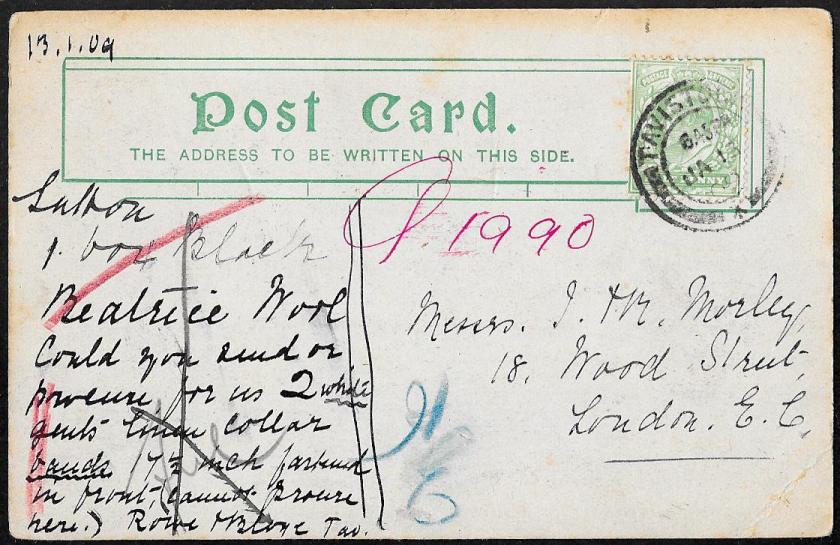 13.1.09
Post Card.
THE ADDRESS TO BE WRITTEN ON THIS SIDE.
TAVISTOCK
JA 13
PENNY
1990
Sutton
1. box Black
Beatrice Wool
Could you send or
procure for us 2 white
gents linen collar
bands 17½ inch fastened
in front, (cannot procure
here.) Rowe Tav.
Messrs. I. & R. Morley,
18. Wood Street,
London. E. C.